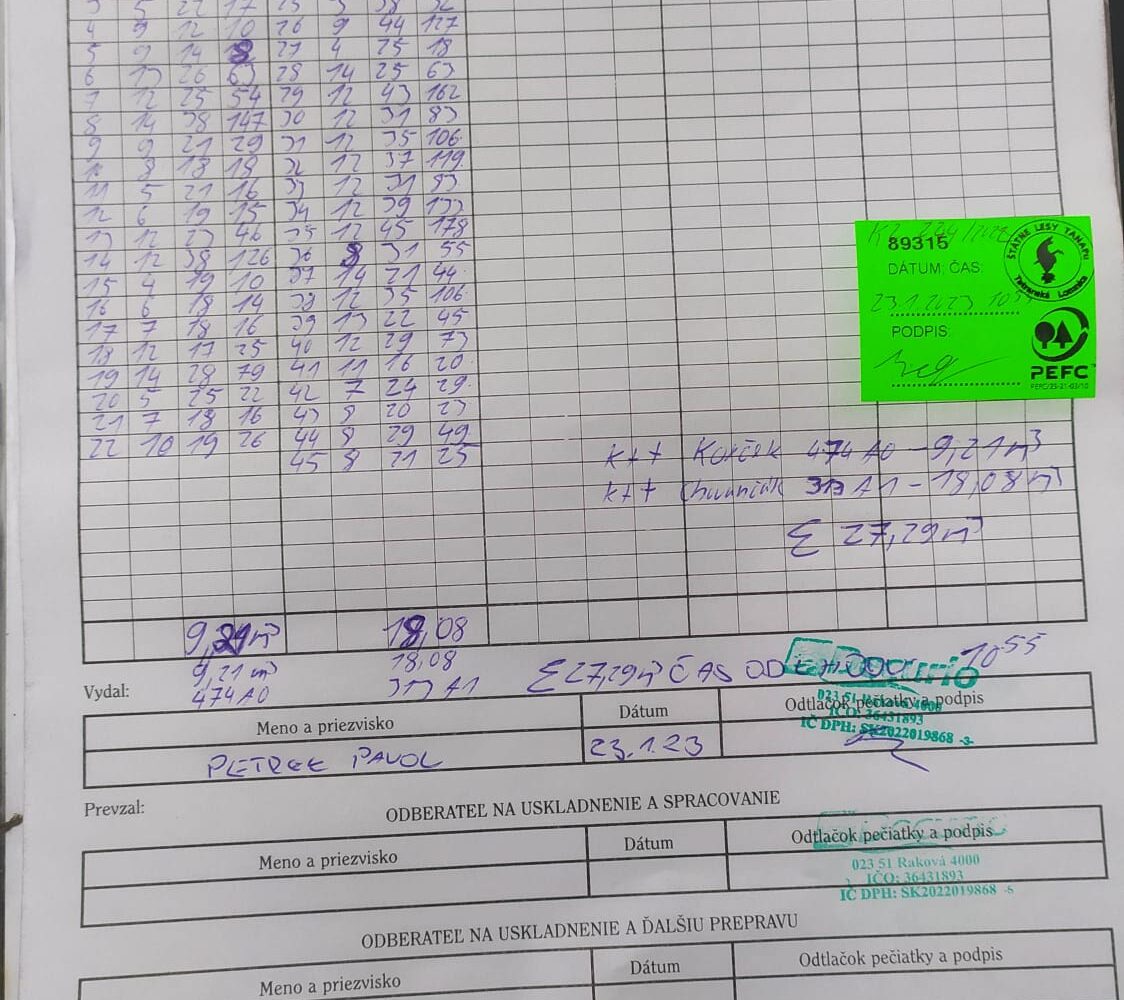 4 9 12 10 26 9 44 127
5 9 14 27 4 25 18
6 13 26 63 28 14 25 63
7 12 25 54 29 12 43 162
8 14 38 147 30 12 31 83
9 9 21 29 31 12 35 106
8 18 18 32 12 37 119
11 5 21 16 33 12 31 83
12 6 19 15 34 12 39 133
13 12 23 46 35 12 45 178
14 12 38 126 36 8 31 55
15 4 19 10 37 14 21 44
16 6 18 14 38 12 35 106
17 7 18 16 39 13 22 45
18 12 17 25 40 12 29 73
19 14 28 79 41 11 16 20
20 5 25 22 42 7 24 29
21 7 18 16 43 8 20 23
22 10 19 26 44 8 29 49
45 8 21 25
89315
ŠTÁTNE LESY TANAPU
Tatranská Lomnica
DÁTUM, ČAS:
23.1.2023 10
PODPIS:
PEFC
PEFC/25-21-03/10
474 A0 - 9,21 m³
313 A1 - 18,08 m³
Σ 27,29 m³
9,21 m³ 18,08
9,21 m³ 18,08 Σ 27,29 m³ ČAS 10⁵⁵
474 A0 313 A1
Vydal:
Meno a priezvisko Dátum Odtlačok pečiatky a podpis
023 51 Raková 4000
IČO: 36431893
IČ DPH: SK2022019868 -3-
PAVOL 23.1.23
Prevzal:
ODBERATEĽ NA USKLADNENIE A SPRACOVANIE
Meno a priezvisko Dátum Odtlačok pečiatky a podpis
023 51 Raková 4000
IČO: 36431893
IČ DPH: SK2022019868
ODBERATEĽ NA USKLADNENIE A ĎALŠIU PREPRAVU
Meno a priezvisko Dátum Odtlačok pečiatky a podpis